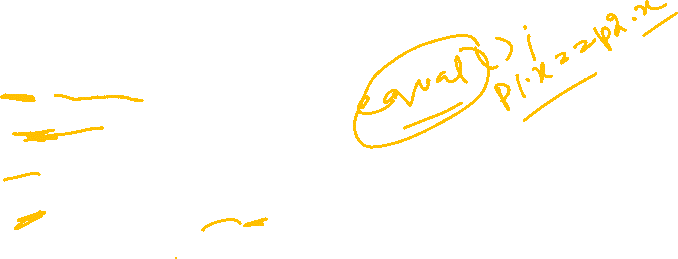 equal();
p1.x==p2.x